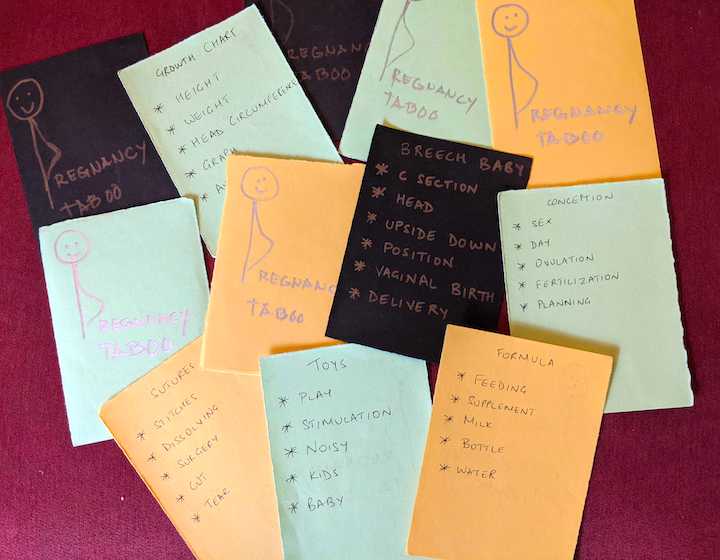 REGNANCY
TABOO
GROWTH CHART
* HEIGHT
* WEIGHT
* HEAD CIRCUMFERENCE
* GRAPH
REGNANCY
TABOO
REGNANCY
TABOO
REGNANCY
TABOO
REGNANCY
TABOO
REGNANCY
TABOO
BREECH BABY
* C SECTION
* HEAD
* UPSIDE DOWN
* POSITION
* VAGINAL BIRTH
* DELIVERY
CONCEPTION
* SEX
* DAY
* OVULATION
* FERTILIZATION
* PLANNING
SUTURES
* STITCHES
* DISSOLVING
* SURGERY
* CUT
* TEAR
TOYS
* PLAY
* STIMULATION
* NOISY
* KIDS
* BABY
FORMULA
* FEEDING
* SUPPLEMENT
* MILK
* BOTTLE
* WATER